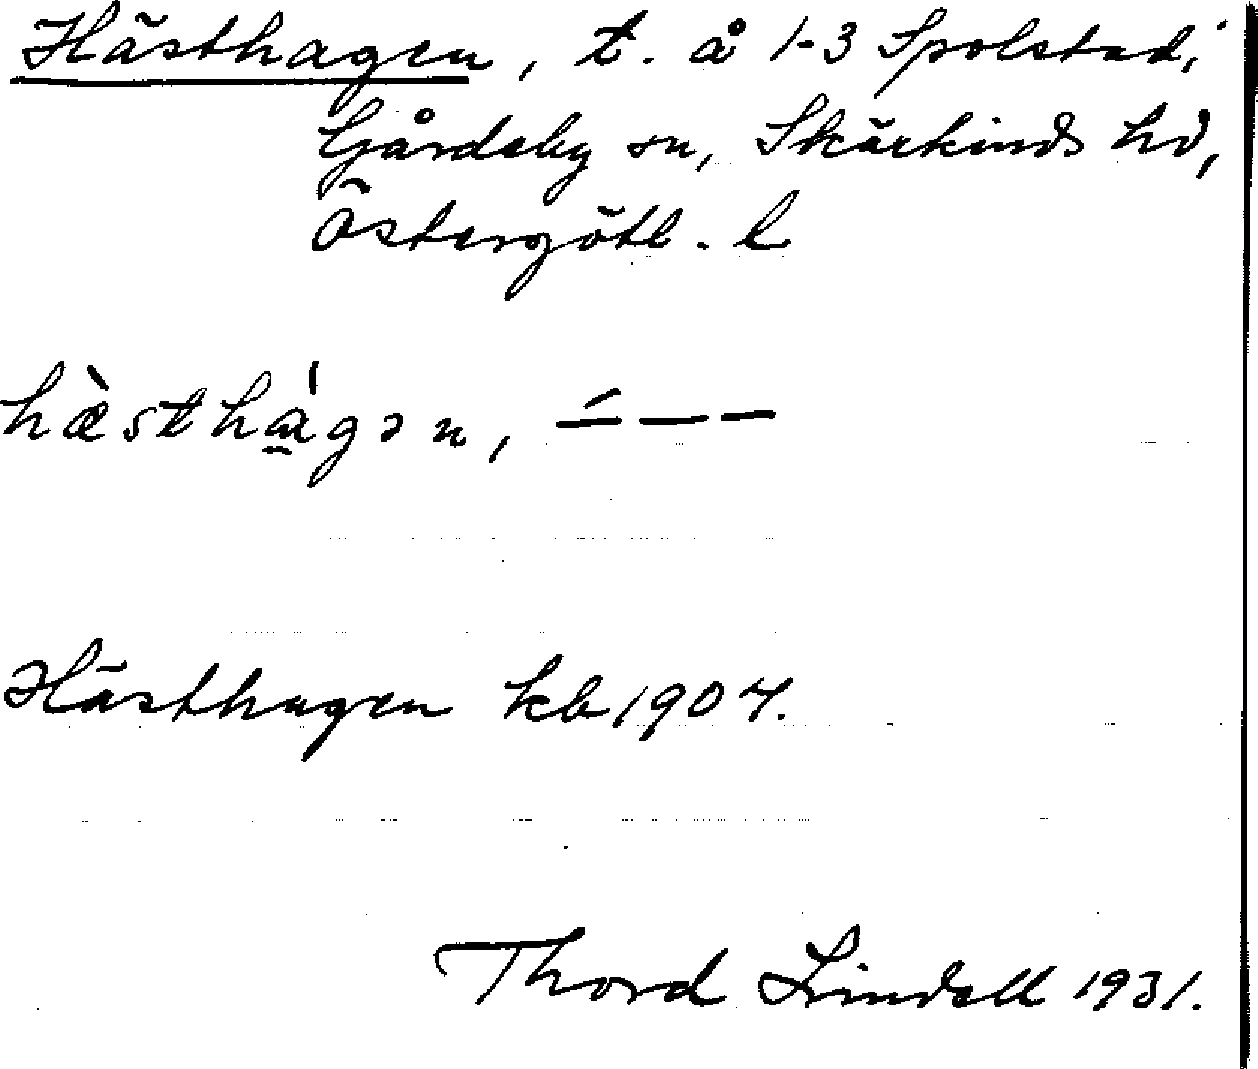 Hästhagen, t. å 1-3 Spolstad,
Gårdeby sn, Skärkinds hd,
Östergötl. l
hæ̀stha̱̍gən, –́ – –
Hästhagen kb 1907.
Thord Lindell 1931.